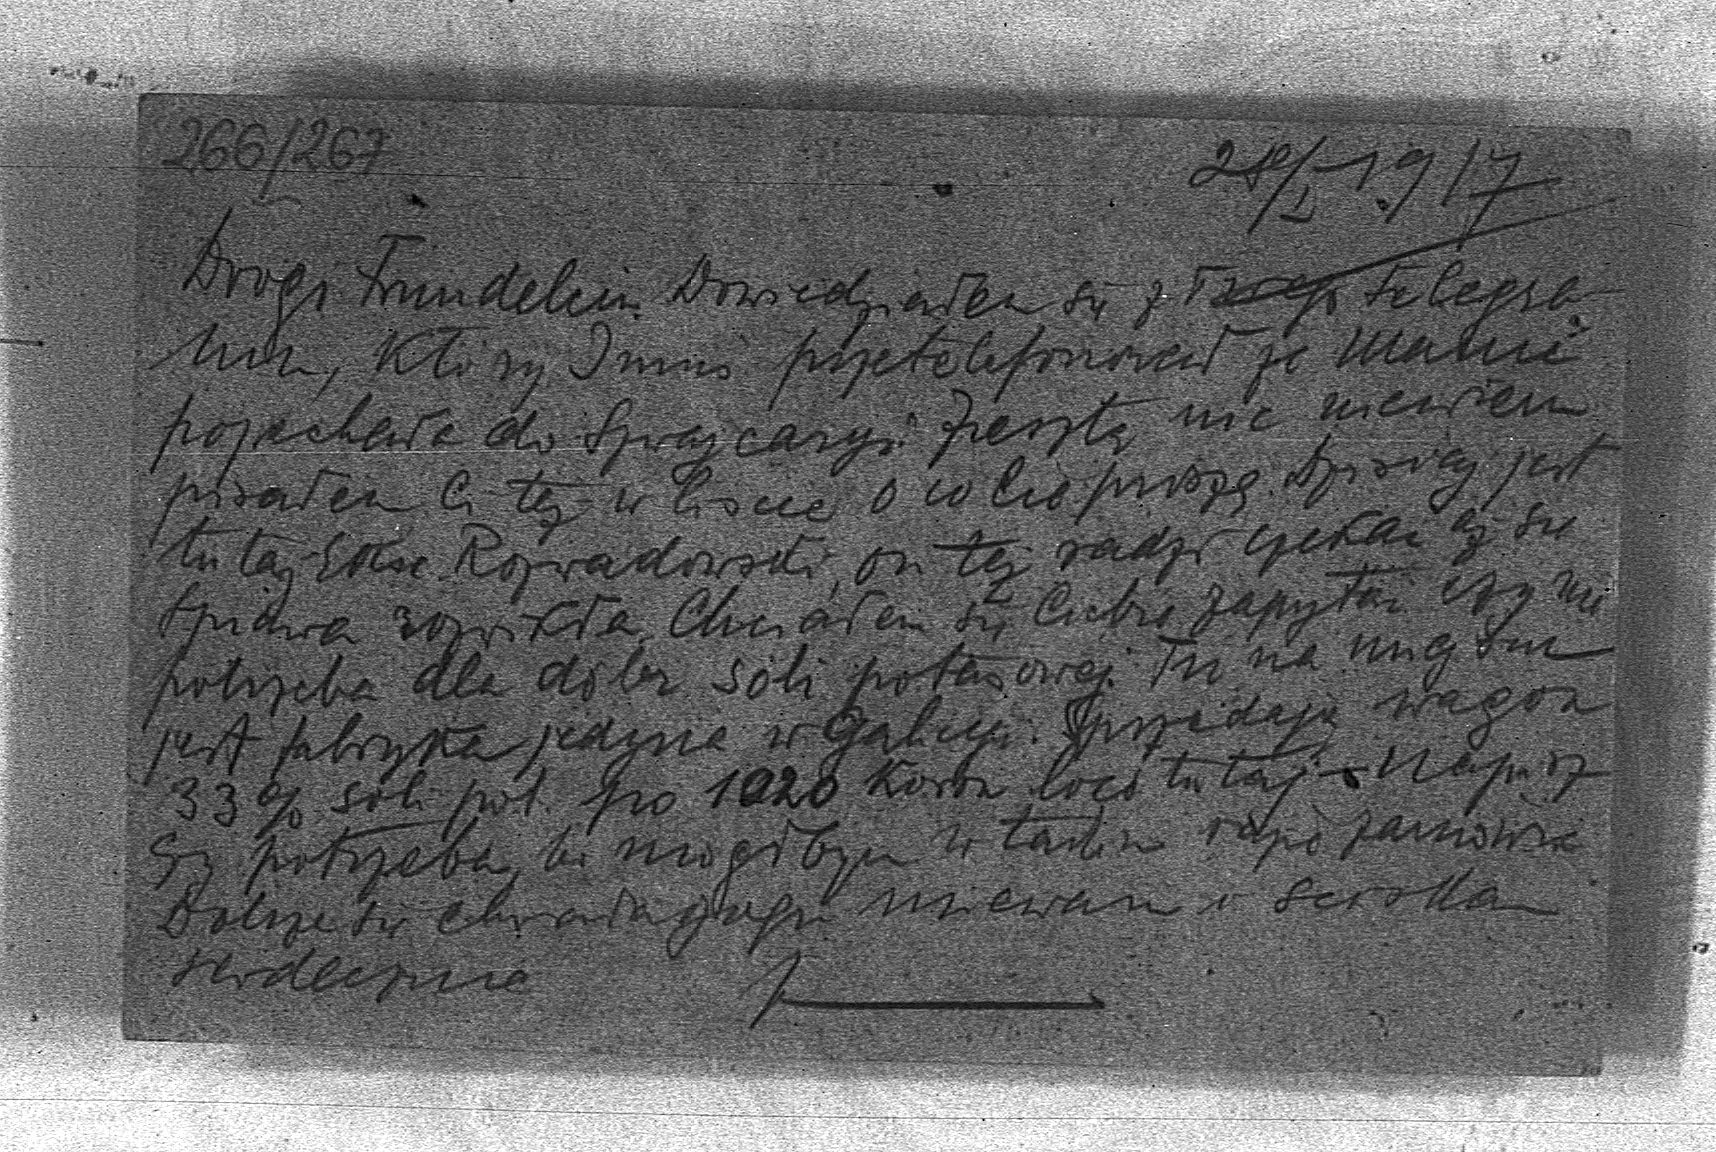 266/267
28/I 1917
Drogi Dowiedziałem się z telegra-
mu, który przetelefonował że Mania
pojechała do Szwajcaryi. Zresztą nic niewiem
pisałem Ci też w liście o co Cię proszę. Dzisiaj jest
tutaj Eksc. Rozwadowski, on też radzi czekać aż się
sprawa rozwikła. Chciałem się Ciebie zapytać czy nie
potrzeba dla dóbr soli potasowej. Tu na miejscu
jest fabryka jedyna w Galicyi. Sprzedają wagon
33% soli pot. po 1020 Koron loco tutaj. Napisz
czy potrzeba, bo mógłbym w takim razie zamówić
Dobrze się chwała Bogu miewam i ściskam
serdecznie